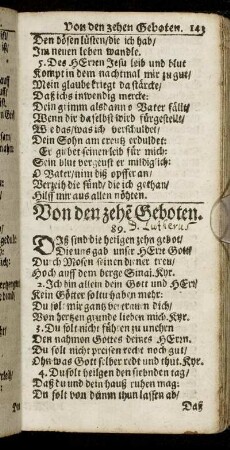 Von den zehen Geboten. 143
Den bösen lüsten/die ich hab/
Im neuen leben wandle.
5. Des HErren Jesu leib und blut
Kompt in dem nachtmal mir zu gut/
Mein glaube kriegt da stärcke/
Daß ichs inwendig mercke:
Dein grimm alsdann o Vater fällt/
Wenn dir daselbst wird fürgestellt/
We das/was ich verschuldet/
Dein Sohn am creutz erduldet:
Er giebet seinen leib für mich:
Sein blut vergeust er mildiglich:
O Vater/nim diß opffer an/
Verzeih die sünd/die ich gethan/
Hilff mir aus allen nöhten.
Von den zehē Geboten.
89. D. Lutherus
Diß sind die heilgen zehn gebot/
Die uns gab unser HErr Gott/
Durch Mosen seinen diener treu/
Hoch auff dem berge Sinai. Kyr.
2. Ich bin allein dein Gott und HErr/
Kein Götter soltu haben mehr:
Du solt mir gantz vertrauen dich/
Von hertzen grunde lieben mich. Kyr.
3. Du solt nicht führen zu unehrn
Den nahmen Gottes deines HErrn.
Du solt nicht preisen recht noch gut/
Ohn was Gott selber redt und thut. Kyr.
4. Du solt heilgen den siebnden tag/
Daß du und dein hauß ruhen mag:
Du solt von deinm thun lassen ab/
Daß